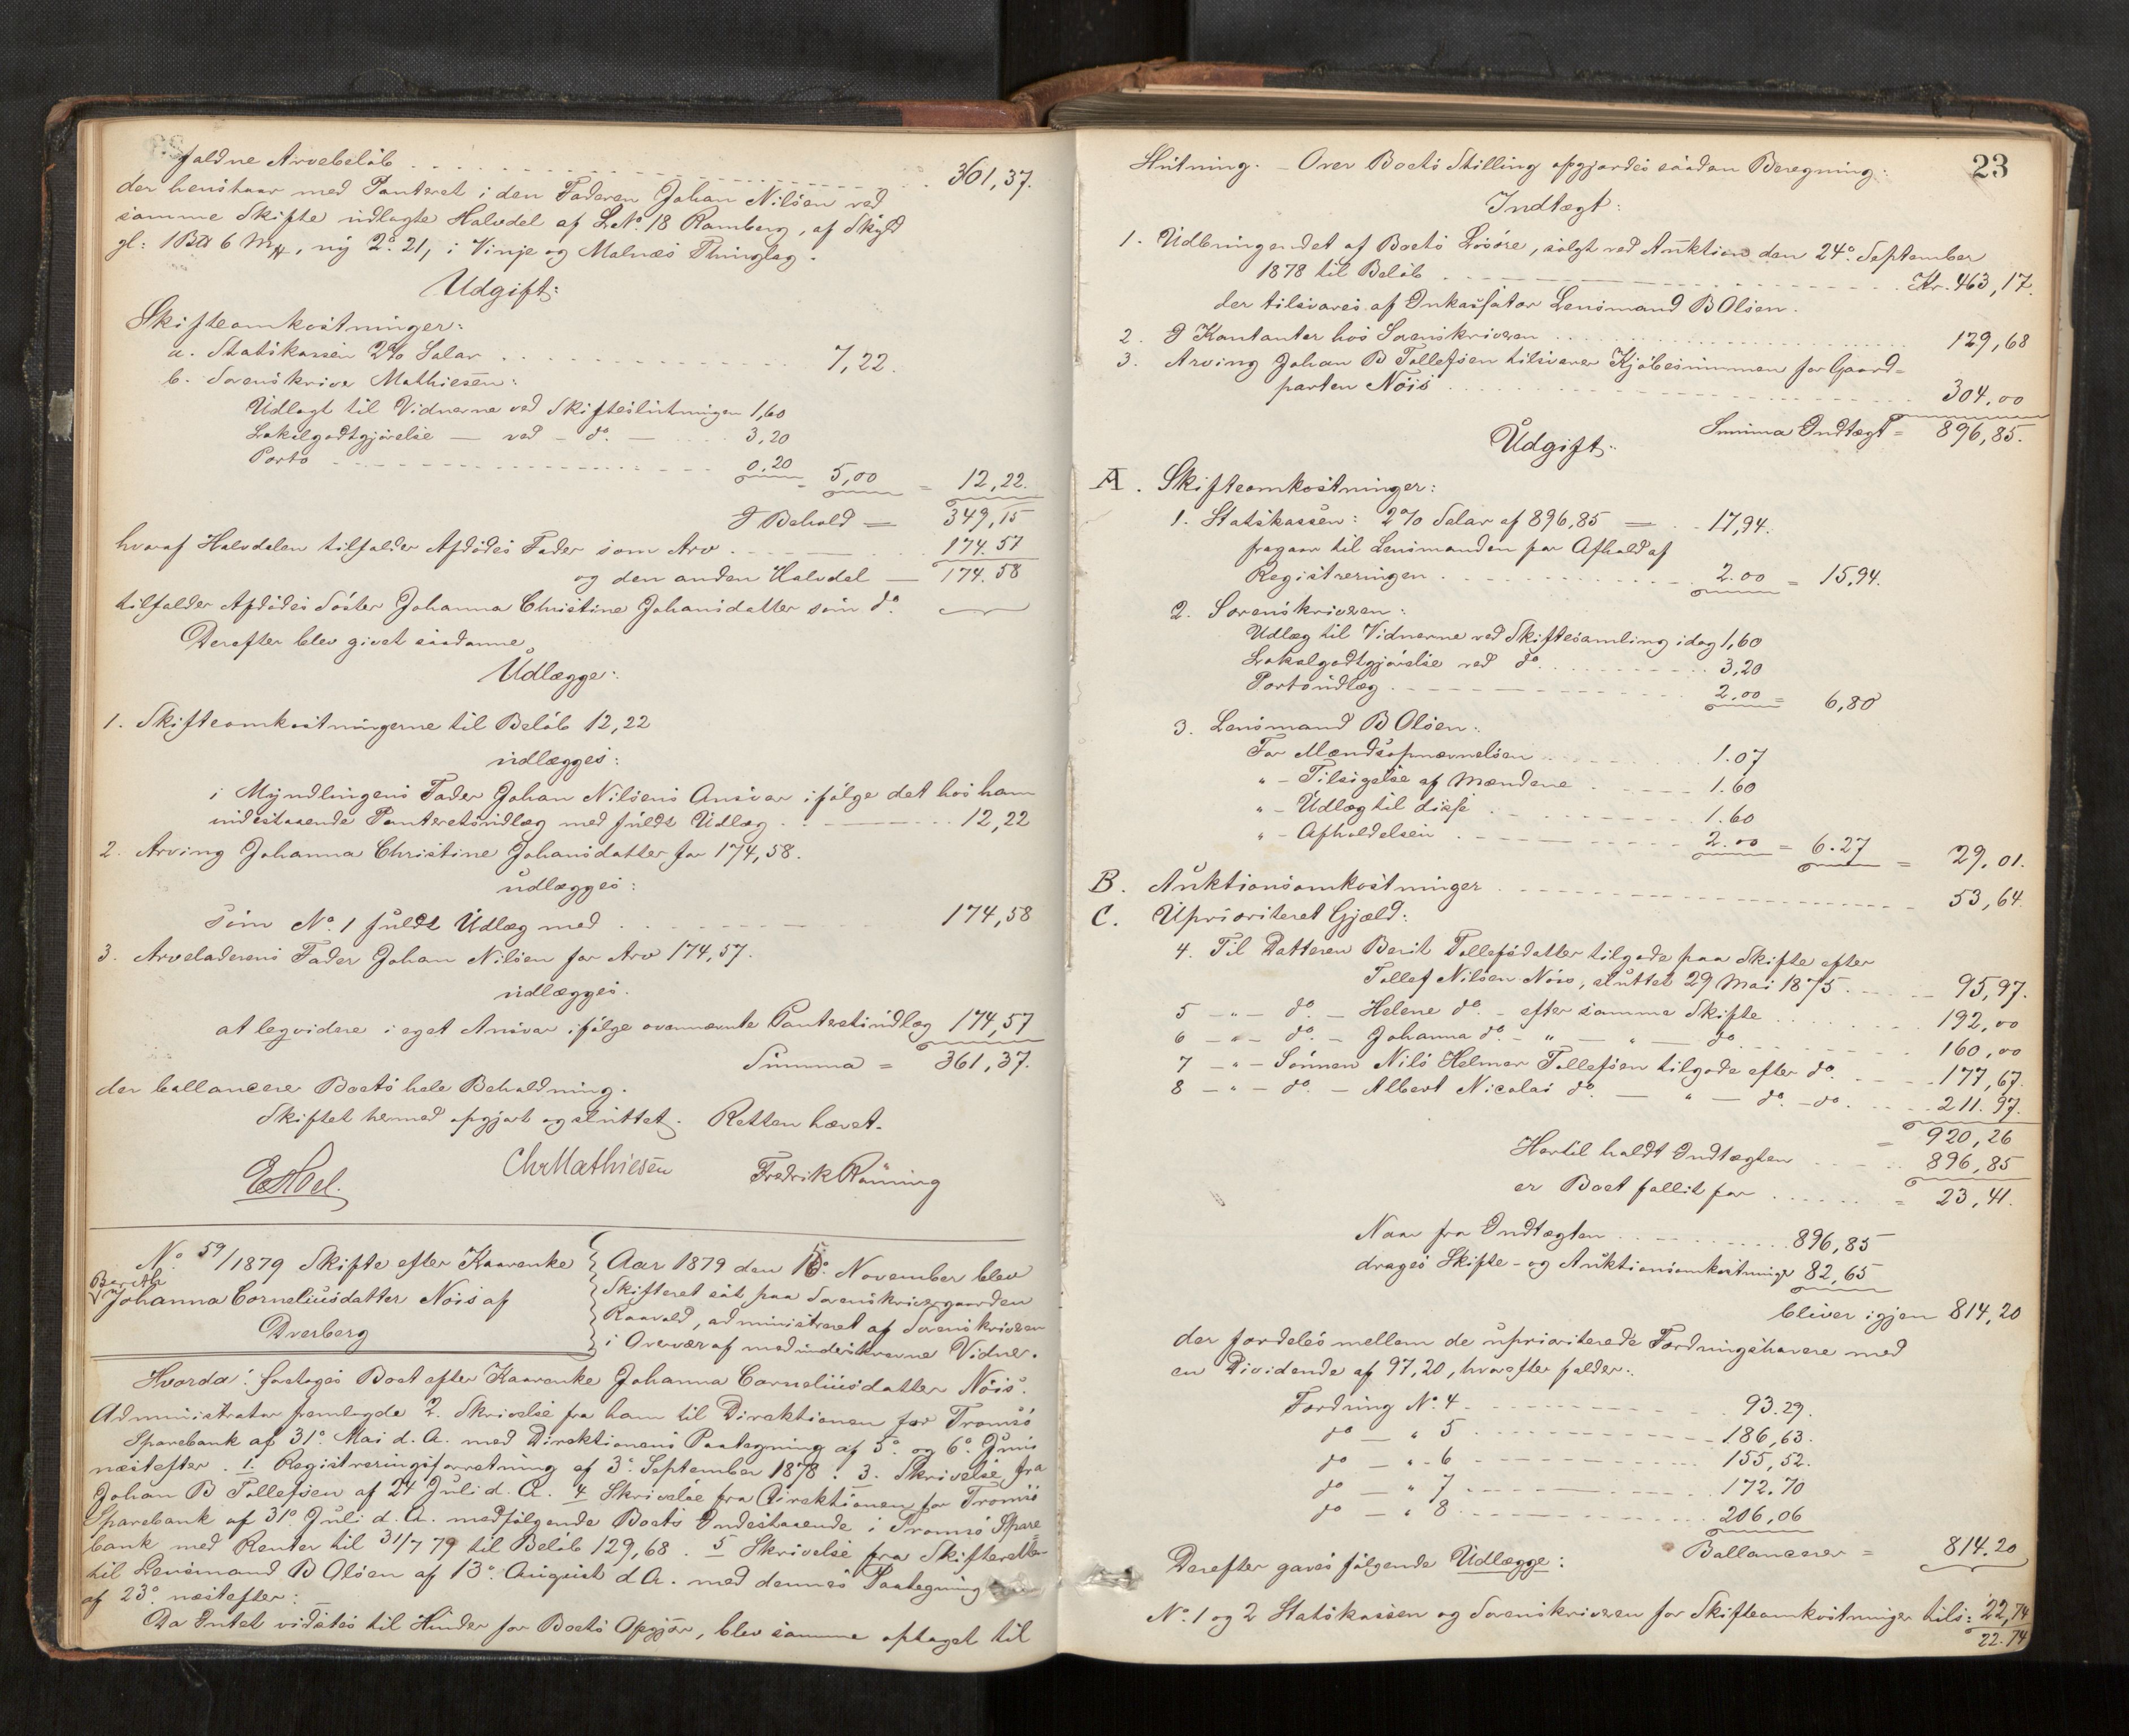 faldne Arvebeløb 361,37.
der henstaar med Panteret i den Faderen Johan Nilsen ved
samme Skifte udlagte Halvdel af LNo. 18 Ramberg, af Skyld
gl: 1 6 ny 2. 21, i Vinje og Malnæs Thinglag.
Udgift:
Skifteomkostninger:
a. Statskassen 2% Salar 7,22.
b. Sorenskriver Mathiesen:
Udlagt til Vidnerne ved Skifteslutningen 1,60
Lokalgodtgjørelse — ved - do. — 3,20
Porto 0.20 = 5,00 = 12,22.
I Behold = 349,15
hvoraf Halvdelen tilfalder Afdødes Fader som Arv 174.57
og den anden Halvdel — 174.58
tilfalder Afdødes Søster Johanna Christine Johansdatter som do.
Derefter blev givet saadanne
Udlægge:
1. Skifteomkostningerne til Beløb 12,22
udlægges:
i Myndlingens Fader Johan Nilsens Ansvar ifølge det hos ham
indestaaende Panteretsudlæg med fuldt Udlæg 12,22
2. Arving Johanna Christine Johansdatter for 174,58.
udlægges:
som No. 1 fuldt Udlæg med 174,58
3. Arveladerens Fader Johan Nilsen for Arv 174,57.
udlægges.
at legvidere i eget Ansvar ifølge ovennævnte Panteretsudlæg 174,57
Summa = 361,37.
der ballancerer Boets hele Beholdning.
Skiftet hermed opgjort og sluttet. Retten hævet.
EAbel. ChrMathiesen Fredrik Rønning
No. 59/1879 Skifte efter Kaarenke
Beretha
Johanna Corneliusdatter Nøis af
Dverberg
Aar 1879 den 15. November blev
Skifteret sat paa Sorenskrivergaarden
Raavold, administreret af Sorenskriveren
i Overvær af medunderskrevne Vidner.
Hvorda: foretoges Boet efter Kaarenke Johanna Corneliusdatter Nøis.
Administrator fremlagde 2. Skrivelse fra ham til Direktionen for Tromsø
Sparebank af 31. Mai d. A. med Direktionens Paategning af 5. og 6. Juni
næstefter. 1. Registreringsforretning af 3. September 1878. 3. Skrivelse fra
Johan B Tollefsen af 24 Juli d. A. 4 Skrivelse fra Direktionen for Tromsø
Sparebank af 31. Juli d. A. medfølgende Boets Indestaaende i Tromsø Spare=
bank med Renter til 31/7 79 til Beløb 129,68. 5 Skrivelse fra Skifteretten
til Lensmand B Olsen af 13. August d A. med dennes Paategning
af 23. næstefter:
Da Intet vidstes til Hinder for Boets Opgjør, blev samme optaget til
23
Slutning. — Over Boets Stilling opgjordes saadan Beregning:
Indtægt:
1. Udbringendet af Boets Løsøre, solgt ved Auktion den 24. September
1878 til Beløb Kr. 463,17.
der tilsvares af Inkassator Lensmand B Olsen.
2. I Kontanter hos Sorenskriveren 129,68
3. Arving Johan B Tollefsen tilsvarer Kjøbesummen for Gaard=
parten Nøis 304,00
Summa Indtægt = 896,85.
Udgift.
A. Skifteomkostninger:
1. Statskassen: 2% Salar af 896,85 — 17,94.
fragaar til Lensmanden for Afhold af
Registreringen 2.00 = 15,94.
2. Sorenskriveren:
Udlæg til Vidnerne ved Skiftesamling idag 1,60
Lokalgodtgjørelse ved do. 3,20
Portoudlæg 2.00 = 6,80
3. Lensmand B Olsen:
For Mændsopnævnelsen 1.07
" - Tilsigelse af Mændene 1.60
" - Udlæg til disse 1.60
" - Afholdelsen 2.00 = 6.27 = 29,01.
B. Auktionsomkostninger 53,64
C. Uprioriteret Gjæld:
4. Til Datteren Berit Tollefsdatter tilgode paa Skifte efter
Tollef Nilsen Nøis, sluttet 29 Mai 1875 95,97.
5 - " - do. - Helene do. - efter samme Skifte 192,00
6 - " - do. - Johanna do. - " - " - do 160,00
7 - " - Sønnen Nils Helmer Tollefsen tilgode efter do. 177,67.
8 - " - do. - Albert Nicolai do. - " - do. - do. 211.97.
= 920,26
Hertil holdt Indtægten 896,85
er Boet fallit for = 23,41.
Naar fra Indtægten 896,85
drages Skifte- og Auktionsomkostninger 82,65
bliver igjen 814,20
der fordeles mellem de uprioriterede Fordringshavere med
en Dividende af 97,20, hvorefter falder:
Fordring No. 4 93.29.
do — " 5 186,63.
do — " 6 155,52.
do — " 7 172.70
do — " 8 206,06
Ballancerer = 814.20
Derefter gaves følgende Udlægge:
No. 1 og 2 Statskassen og Sorenskriveren for Skifteomkostninger tils: 22,74
22.74